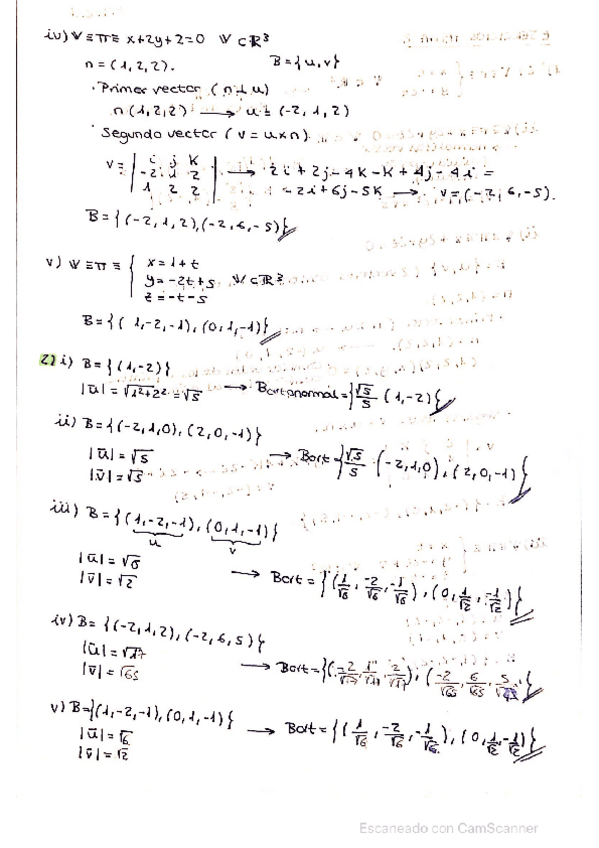 iv) V ≡ π ≡ x+2y+2=0 V ⊂ R³
n = (1,2,2). B = {u,v}
· Primer vector (n ⊥ u)
n (1,2,2) → u = (-2,1,2)
· Segundo vector (v = u×n)
v = | i j k | → 2i + 2j - 4k - k + 4j - 4i =
| -2 1 2 | = -2i + 6j - 5k → v = (-2,6,-5).
| 1 2 2 |
B = {(-2,1,2),(-2,6,-5)}
v) V ≡ π ≡ { x = 1+t
y = -2t+s V ⊂ R³
z = -t-s
B = {(1,-2,-1),(0,1,-1)}
2) i) B = {(1,-2)}
|ū| = √1²+2² = √5 → Bortonormal = {√5/5 (1,-2)}
ii) B = {(-2,1,0),(2,0,-1)}
|ū| = √5 → Bort = {√5/5 · (-2,1,0),(2,0,-1)}
|v̄| = √5
iii) B = {(1,-2,-1),(0,1,-1)}
u v
|ū| = √6
|v̄| = √2 → Bort = {(1/√6, -2/√6, -1/√6),(0, 1/√2, -1/√2)}
iv) B = {(-2,1,2),(-2,6,5)}
|ū| = √17
|v̄| = √65 → Bort = {(-2/√17, 1/√17, 2/√17),(-2/√65, 6/√65, 5/√65)}
v) B = {(1,-2,-1),(0,1,-1)}
|ū| = √6 → Bort = {(1/√6, -2/√6, -1/√6),(0, 1/√2, -1/√2)}
|v̄| = √2
Escaneado con CamScanner